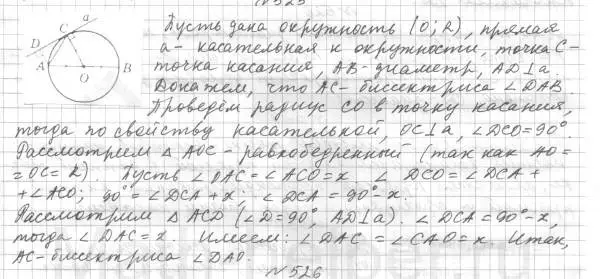 № 525
Пусть дана окружность (О; R), прямая
а - касательная к окружности, точка С -
точка касания, АВ - диаметр, AD⊥a.
Докажем, что АС - биссектриса ∠DAB.
Проведём радиус СО в точку касания,
тогда по свойству касательной, ОС⊥а, ∠DCO=90°.
Рассмотрим △ АОС - равнобедренный (так как АО=
=ОС=R). Пусть ∠OAC=∠ACO=x. ∠DCO=∠DCA+
+∠ACO; 90°=∠DCA+x; ∠DCA=90°-x.
Рассмотрим △ ACD (∠D=90°, AD⊥a). ∠DCA=90°-x,
тогда ∠DAC=x. Имеем: ∠DAC=∠CAO=x. Итак,
АС-биссектриса ∠DAO.
№ 526
D
C
a
A
O
B